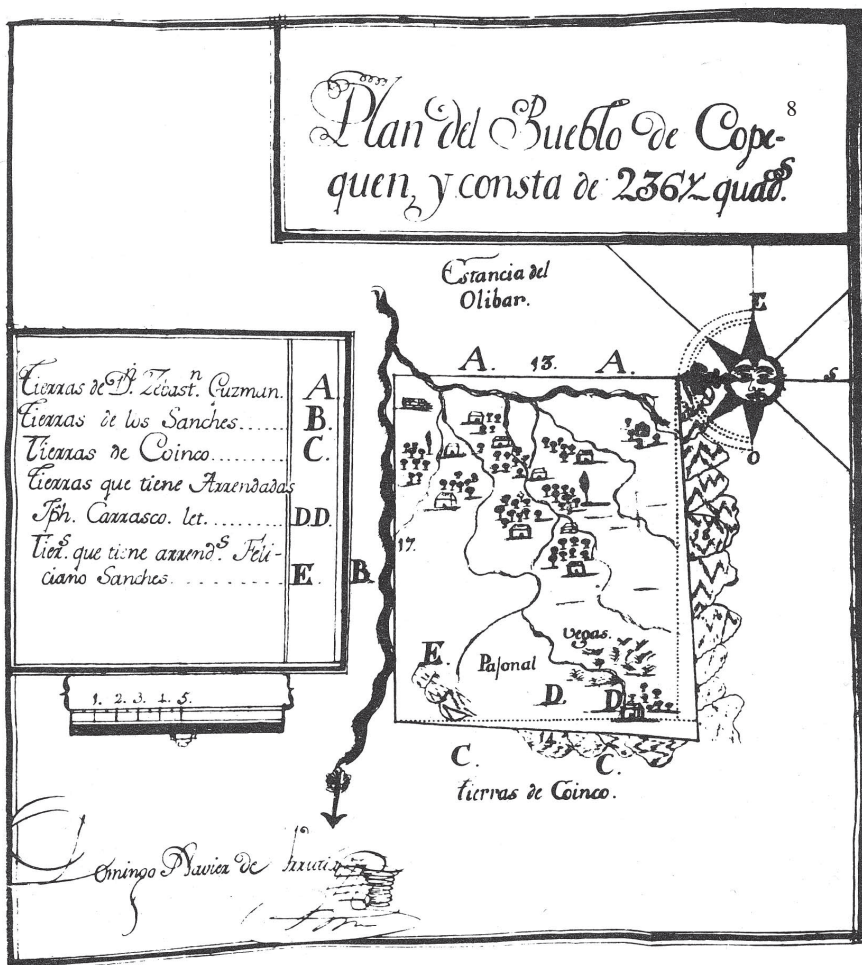 Plan del Pueblo de Cope-
8
quen, y consta de 236½ quads.
Estancia del
Olibar.
E
A. 13. A.
S
O
Tierras de Dn. Zebastn. Guzman. A
Tierras de los Sanches...... B.
Tierras de Coinco......... C.
Tierras que tiene Arrendadas
Jph. Carrasco. let......... D.D.
Tiers. que tiene arrends. Feli-
ciano Sanches........... E.
B.
17.
18.
Vegas.
E.
Pajonal
D. D.
1. 2. 3. 4. 5.
14.
C. C.
tierras de Coinco.
Domingo Xavier de